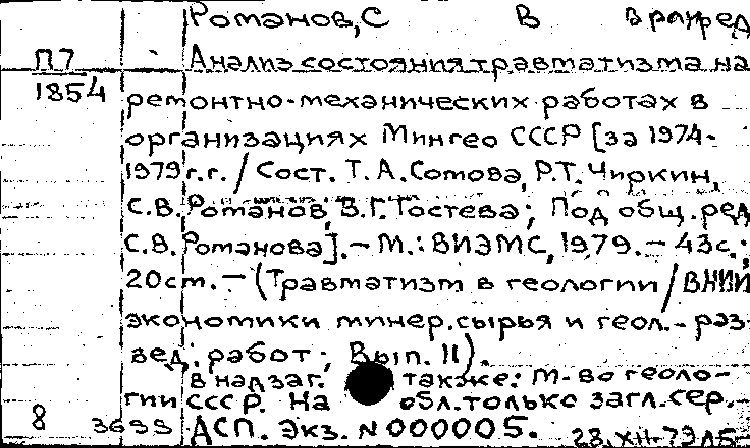 Романов, С В в ранред
П7
1854
Анализ состояния травматизма на
ремонтно-механических работах в
организациях Мингео СССР [за 1974-
1979 г.г. / Сост. Т.А.Сотова, Р.Т.Чиркин,
С.В.Романов, В.Г.Тостева; Под общ.ред
С.В.Романова].- М.: ВИЭМС, 1979.- 43с.;
20ст. - (Травматизм в геологии / ВНИИ
экономики минер.сырья и геол.- раз-
вед. работ; Вып. II).
в надзаг. также: м-во геоло-
гии СССР. На обл.только загл.сер.-
8 3699 ДСП. Экз. N 000005. 28.XII-79